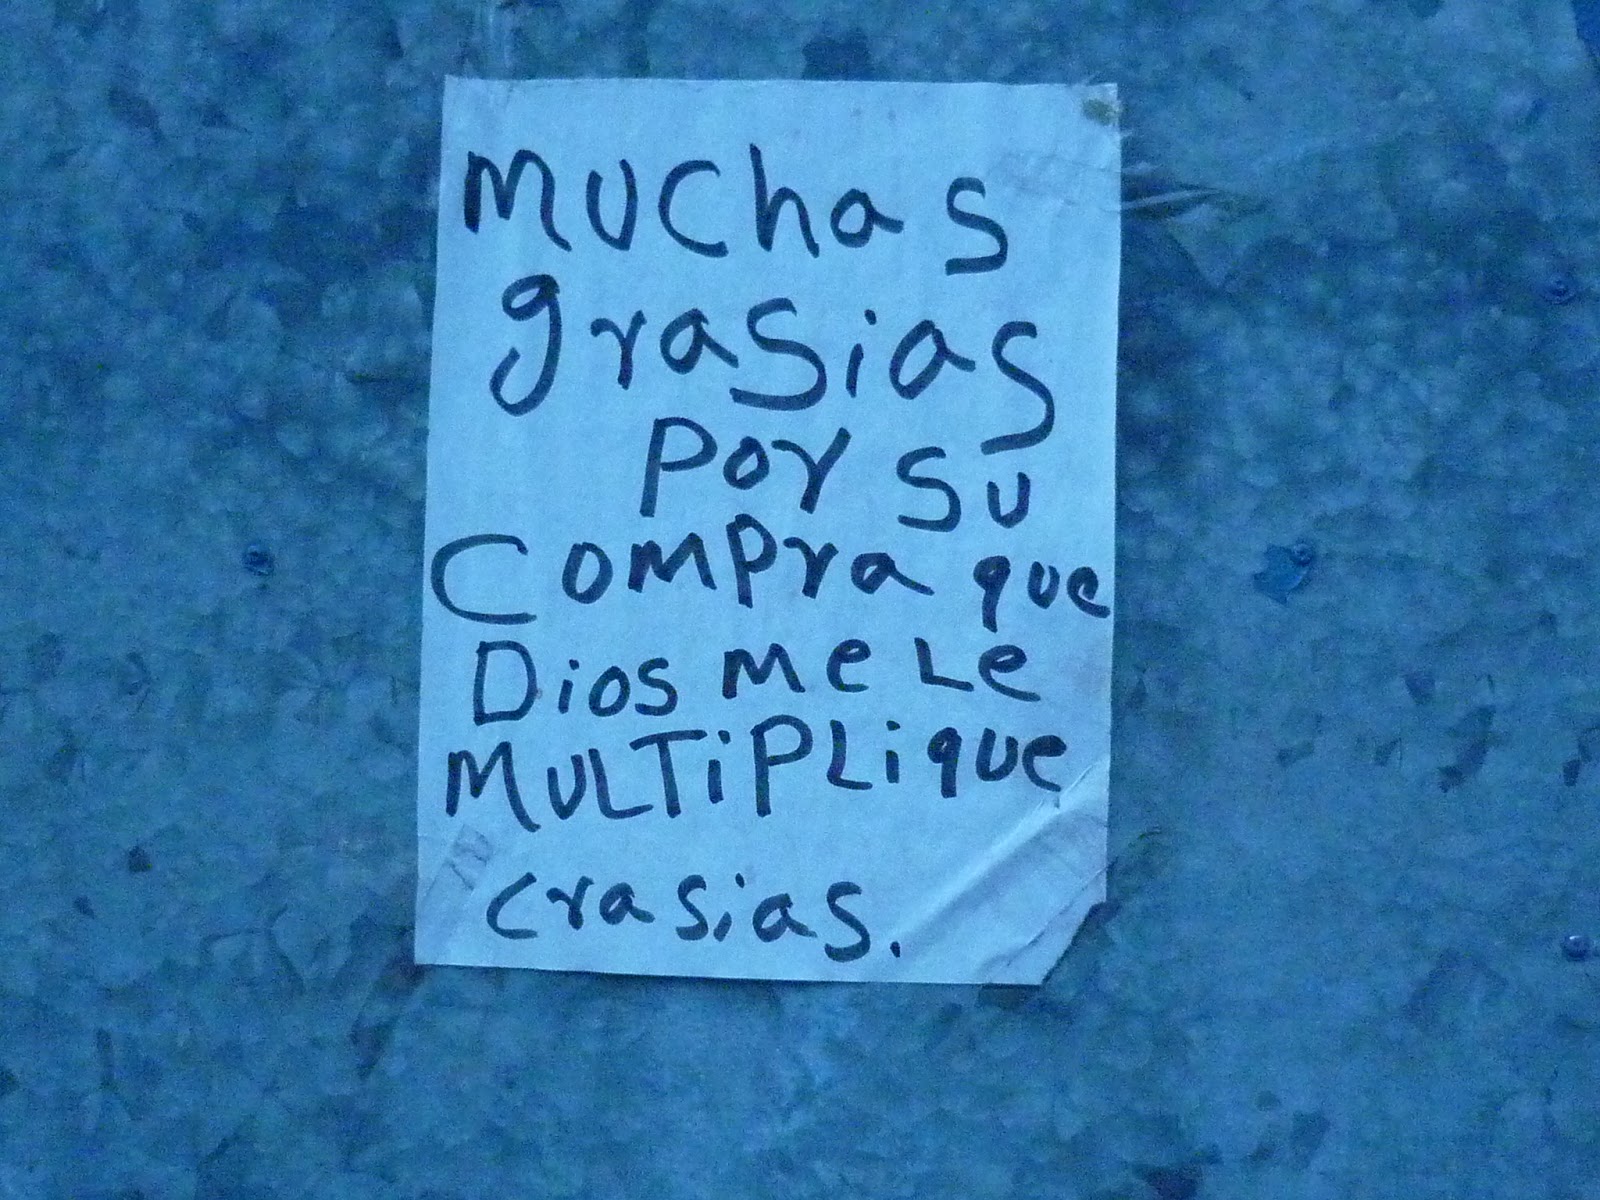 muchas
grasias
por su
compra que
Dios me Le
MULTiPLique
crasias.